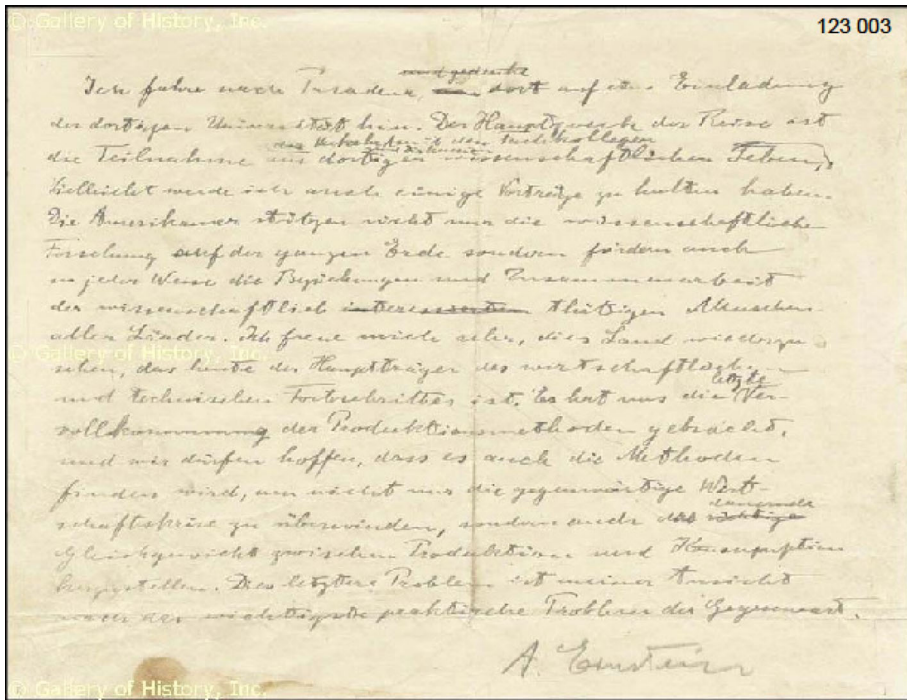 © Gallery of History, Inc.
123 003
und gedenke
Ich fahre nach Pasadena, dort auf eine Einladung
der dortigen Universität hin. Der Hauptzweck der Reise ist
der Verkehr mit den Fachkollegen
die Teilnahme am dortigen wissenschaftlichen Leben,
Vielleicht werde ich auch einige Vorträge zu halten haben.
Die Amerikaner stützen nicht nur die wissenschaftliche
Forschung auf der ganzen Erde sondern fördern auch
in jeder Weise die Beziehungen und Zusammenarbeit
der wissenschaftlich interessierten thätigen Menschen
aller Länder. Ich freue mich sehr, dies Land wiederzu-
© Gallery of History, Inc.
sehen, das heute der Hauptträger des wirtschaftlichen
letzte
und technischen Fortschrittes ist. Es hat uns die Ver-
vollkommnung der Produktionsmethoden gebracht,
und wir dürfen hoffen, dass es auch die Methoden
finden wird, um nicht nur die gegenwärtige Wirt-
dauernde
schaftskrise zu überwinden, sondern auch das richtige
Gleichgewicht zwischen Produktion und Konsumption
herzustellen. Dies letztere Problem ist meiner Ansicht
nach das wichtigste praktische Problem der Gegenwart.
A. Einstein
© Gallery of History, Inc.